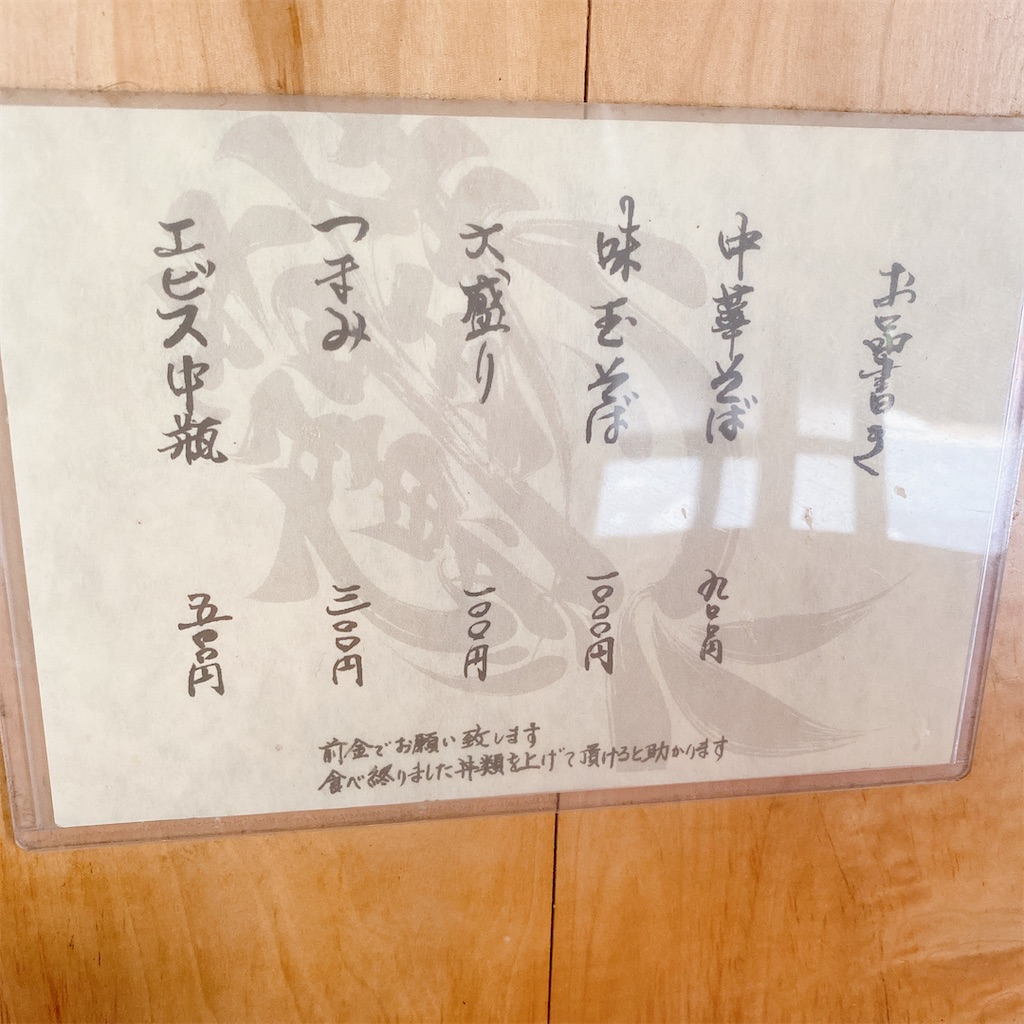 お品書き
中華そば 九〇〇円
味玉そば 一〇〇〇円
大盛り 一〇〇円
つまみ 三〇〇円
エビス中瓶 五〇〇円
前金でお願い致します
食べ終りました丼類を上げて頂けると助かります